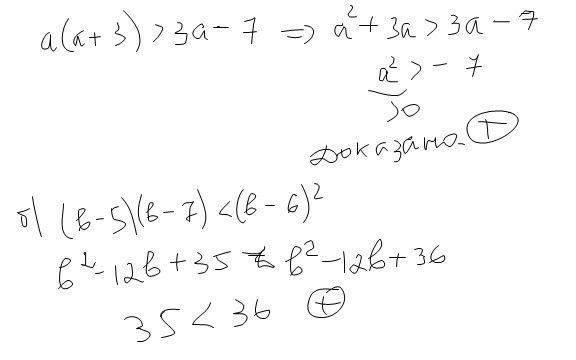 a(a+3) > 3a - 7 => a² + 3a > 3a - 7
a² > - 7
>0
Доказано. +
б) (b-5)(b-7) < (b-6)²
b² - 12b + 35 < b² - 12b + 36
35 < 36 +